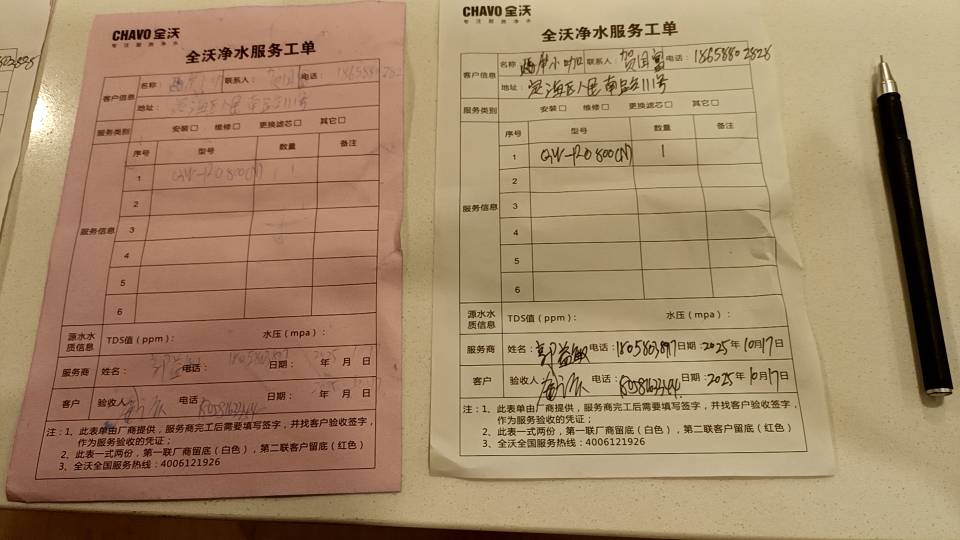 CHAVO 全沃
专注智造净水
全沃净水服务工单
客户信息 名称: 联系人: 电话: 1865880282
地址: 定海区人民南路111号
服务类别 安装□ 维修□ 更换滤芯□ 其它□
服务信息 序号 型号 数量 备注
1 800(N) 1
2
3
4
5
6
源水水质信息 TDS值(ppm): 水压(mpa):
服务商 姓名: 电话: 日期: 年 月 日
客户 验收人: 电话: 日期: 年 月 日
注:1、此表单由厂商提供,服务商完工后需要填写签字,并找客户验收签字,
作为服务验收的凭证;
2、此表一式两份,第一联厂商留底(白色),第二联客户留底(红色)
3、全沃全国服务热线:4006121926
CHAVO 全沃
全沃净水服务工单
客户信息 名称: 小咖 联系人: 贺国富 电话: 18658802828
地址: 定海区人民南路111号
服务类别 安装□ 维修□ 更换滤芯□ 其它□
服务信息 序号 型号 数量 备注
1 QW-RO800(N) 1
2
3
4
5
6
源水水质信息 TDS值(ppm): 水压(mpa):
服务商 姓名: 郭益敏 电话: 日期: 2025年10月17日
客户 验收人 电话: 日期: 2025年10月17日
注:1、此表单由厂商提供,服务商完工后需要填写签字,并找客户验收签字,
作为服务验收的凭证;
2、此表一式两份,第一联厂商留底(白色),第二联客户留底(红色)
3、全沃全国服务热线:4006121926